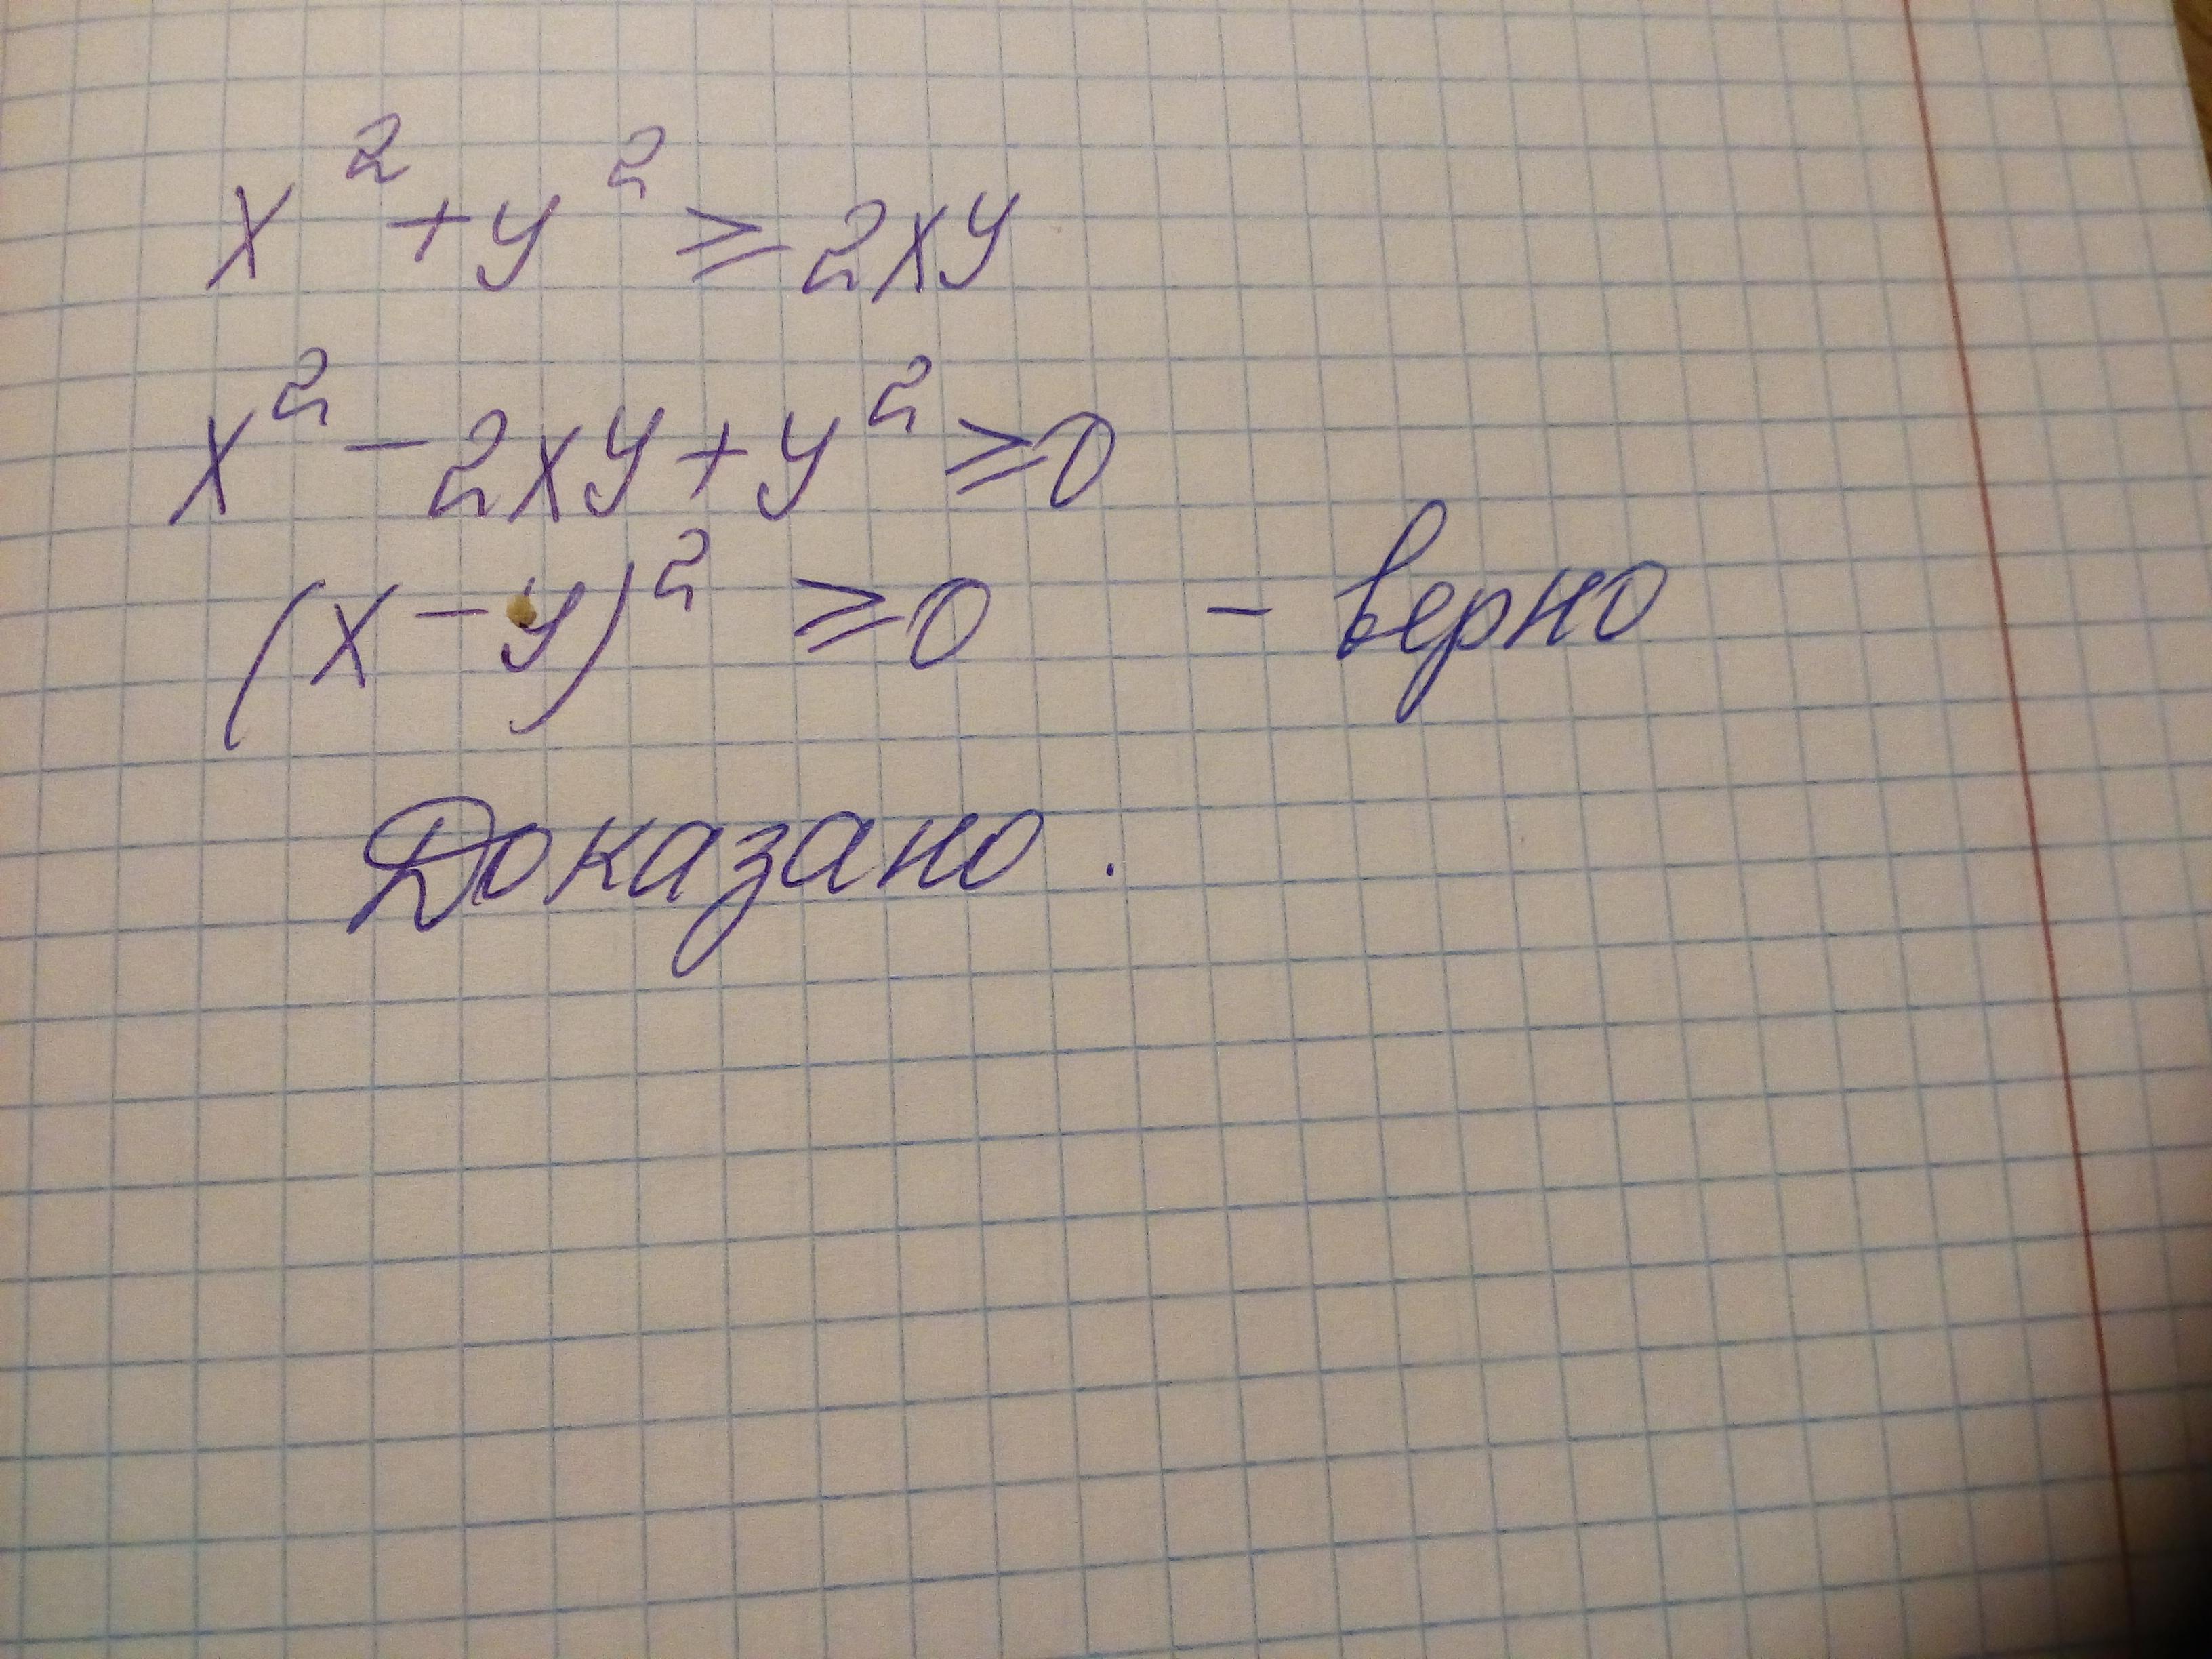 x² + y² ≥ 2xy
x² - 2xy + y² ≥ 0
(x - y)² ≥ 0 - верно
Доказано.